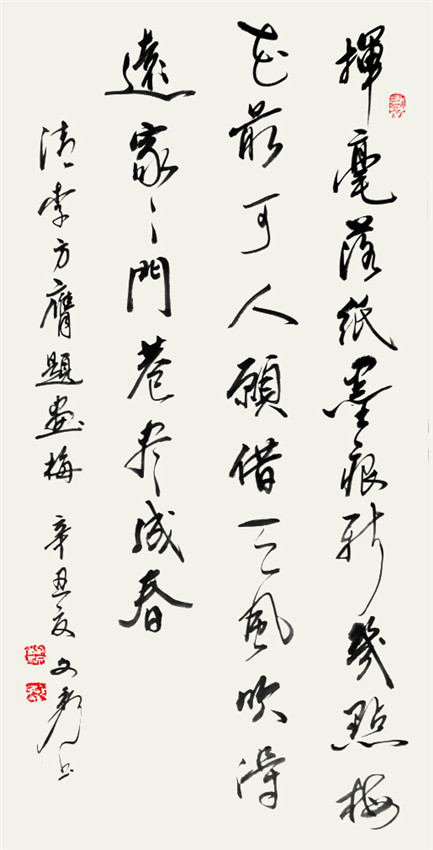 揮毫落紙墨痕新幾點梅
花最可人願借天風吹得
遠家〻門巷尽成春
清李方膺題畫梅 辛丑夏 文